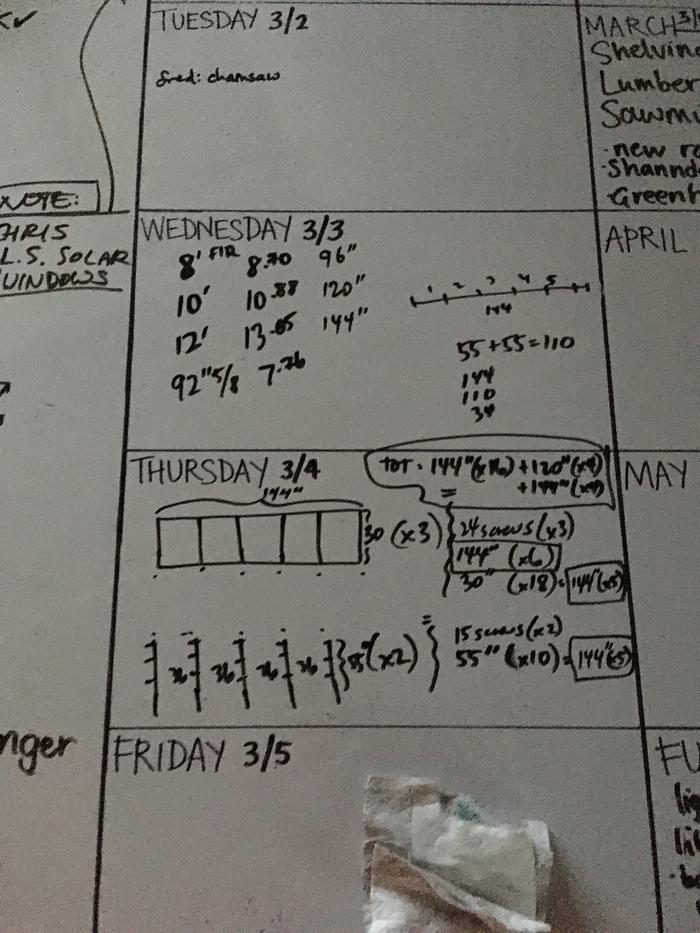 NOTE:
CHRIS
L.S. SOLAR
WINDOWS
nger
TUESDAY 3/2
Fred: chainsaw
WEDNESDAY 3/3
8' FIR 8.70 96"
10' 10.88 120"
12' 13.05 144"
92" 5/8 7.76
1 2 3 4 5
144
55+55=110
144
110
34
THURSDAY 3/4
TOT = 144"(x16) + 120"(x4)
+144"(x4)
=
144"
30 (x3)
24 screws (x3)
144" (x6)
30" (x18) = 144"(x5)
36 36 36 36 55" (x2) =
15 screws (x2)
55" (x10) = 144"(x5)
FRIDAY 3/5
MARCH
Shelvin
Lumber
Sawmi
-new ro
-Shannd
-Greenh
APRIL
MAY
FU
lig